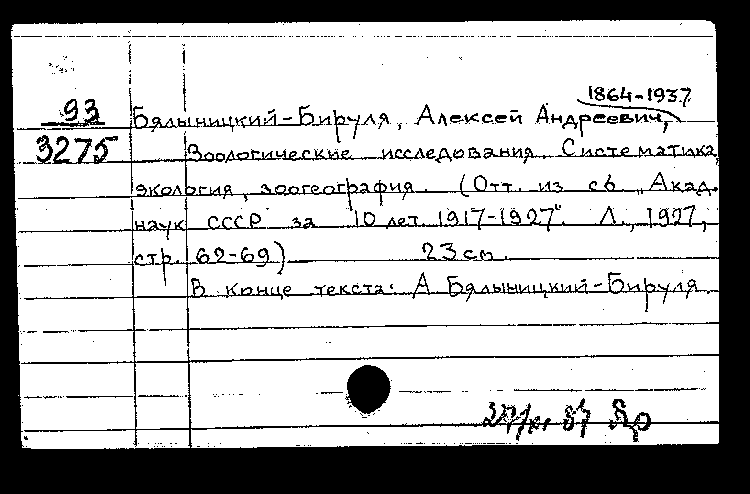 1864-1937
93
3275
Бялыницкий-Бируля, Алексей Андреевич,
Зоологические исследования. Систематика,
экология, зоогеография. (Отт. из сб. „Акад.
наук СССР за 10 лет 1917-1927". Л., 1927,
стр. 62-69) 23 см.
В конце текста: А Бялыницкий-Бируля.
87